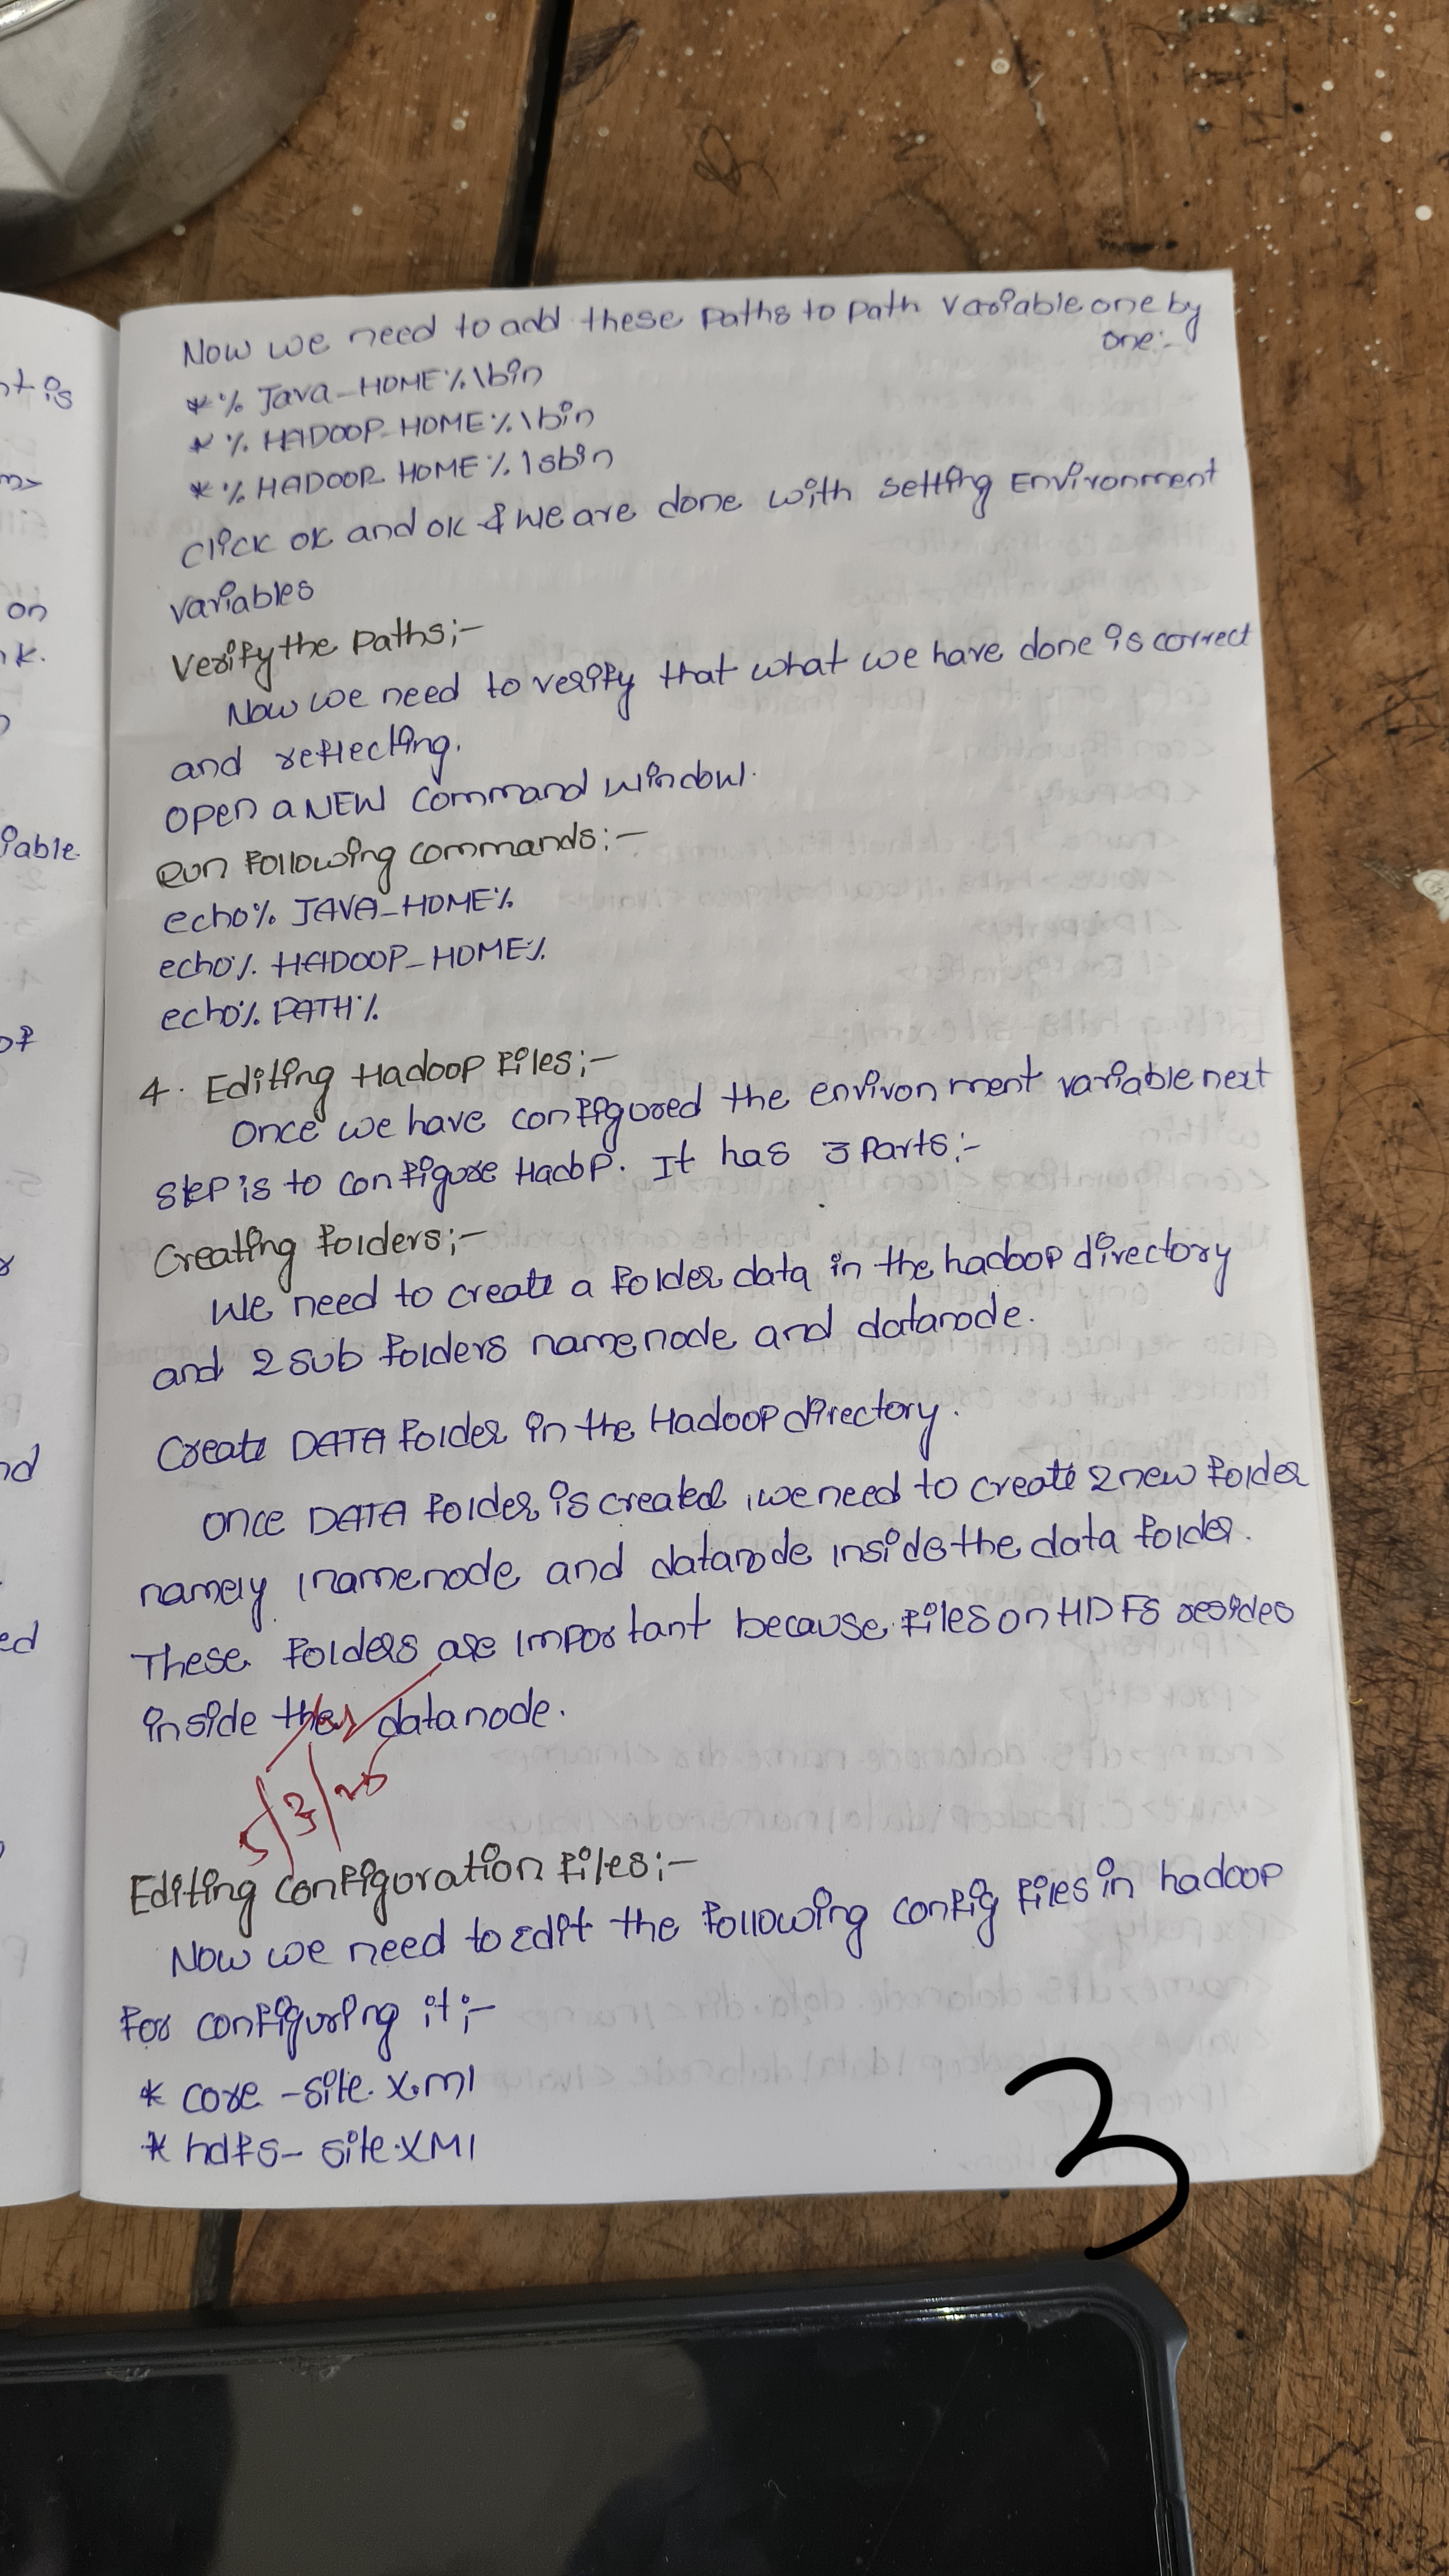 Now we need to add these paths to path variable one by
one:-
* % Java_HOME%\bin
* % HADOOP_HOME%\bin
* % HADOOP HOME%\sbin
click ok and ok & we are done with setting Environment
variables
Verify the paths;-
Now we need to verify that what we have done is correct
and reflecting.
open a NEW command window.
Run following commands:-
echo% JAVA_HOME%
echo% HADOOP_HOME%
echo% PATH%
4. Editing Hadoop Files;-
Once we have configured the environment variable next
step is to configure Hadop. It has 3 parts;-
Creating folders;-
We need to create a folder data in the hadoop directory
and 2 sub folders namenode and datanode.
Create DATA folder in the Hadoop directory.
once DATA folder is created, we need to create 2 new folder
namely, namenode and datanode inside the data folder.
These folders are important because files on HDFS resides
inside the datanode.
5/3/25
Editing configuration files;-
Now we need to Edit the following config files in hadoop
for configuring it;-
* core -site.xml
* hdfs- site.XMl
3
nt is
m>
on
nk.
iable.
of
nd
ed